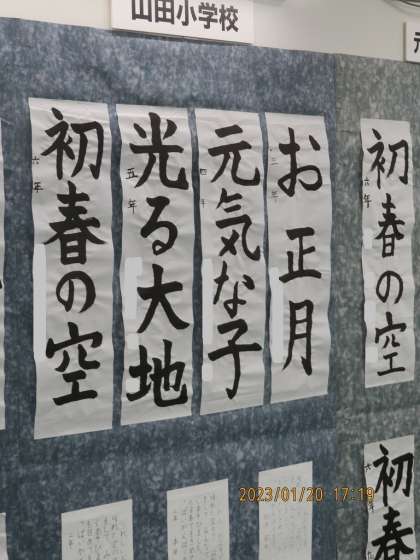 山田小学校
お正月
三年
元気な子
四年
光る大地
五年
初春の空
六年
初春の空
六年
初春
2023/01/20 17:19